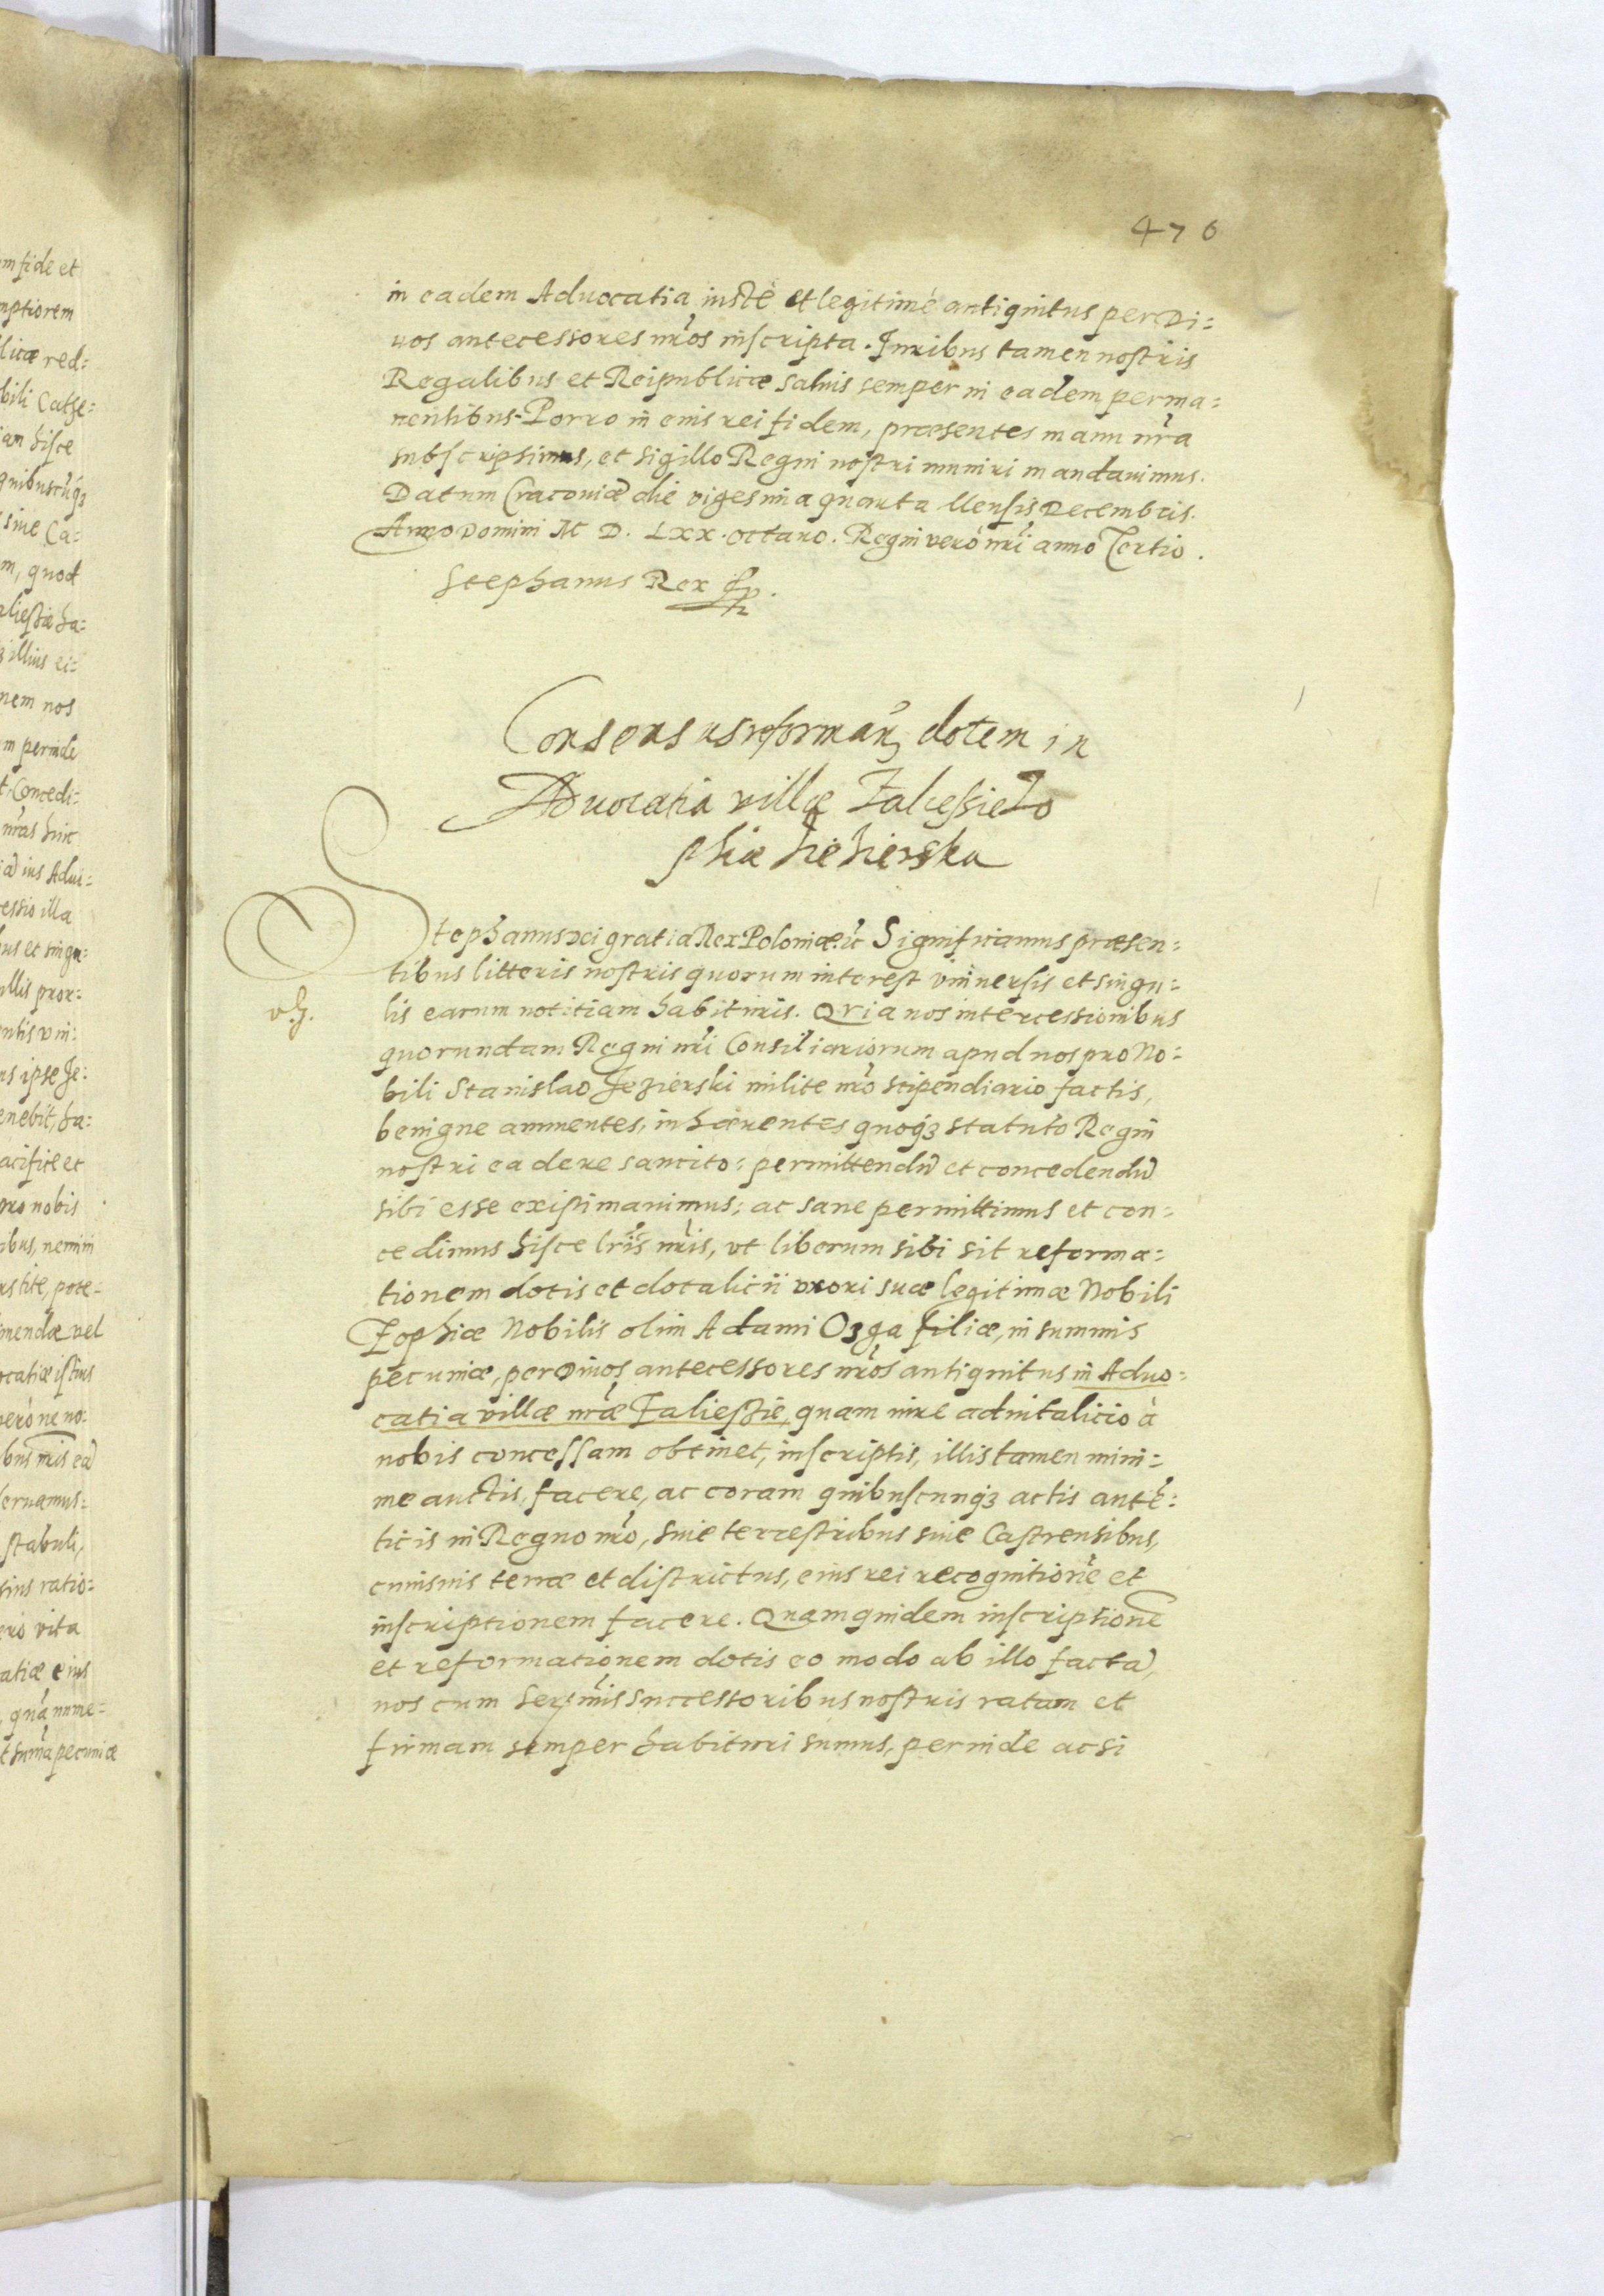 476
in eadem Aduocatia iustè et legitimè antiquitus per Di=
uos antecessores nr̃os inscripta. Iuribus tamen nostris
Regalibus et Reipublicæ saluis semper in eadem perma=
nentibus. Porro in eius rei fidem, præsentes manu nr̃a
subscripsimus, et sigillo Regni nostri muniri mandauimus.
Datum Cracouiæ die vigesima quarta Mensis Decembris.
Anno Domini M D. LXX. octauo. Regni verò nr̃i anno Tertio.
Stephanus Rex
Consensus reforman̄ dotem in
Aduocatia villæ Zaliessie Zo
phiæ
Stephanus Dei gratia Rex Poloniæ. ꝛc Significamus præsen=
tibus litteris nostris quorum interest vniuersis et singu=
lis earum notitiam habituris. Quia nos intercessionibus
quorundam Regni nr̃i Consiliariorum apud nos pro No=
bili Stanislao Jezierski milite nr̃o stipendiario factis,
benigne annuentes, inhærentes quoqꝫ statuto Regni
nostri ea de re sancito: permittendū et concedendū
sibi esse existimauimus; ac sane permittimus et con=
cedimus hisce lr̃is nr̃is, vt liberum sibi sit reforma=
tionem dotis et dotalicii vxori suæ legitimæ Nobili
Zophiæ Nobilis olim Adami Ozga filiæ, in summis
pecuniæ, per Diuos antecessores nr̃os antiquitus in Aduo=
catia villæ nr̃æ Zaliessie, quam iure aduitalicio à
nobis concessam obtinet, inscriptis, illis tamen mini=
me auctis, facere, ac coram quibuscunqꝫ actis autē=
ticis in Regno nr̃o, siue terrestribus siue Castrensibus,
cuiusuis terræ et districtus, eius rei recognitionē et
inscriptionem facere. Quamquidem inscriptionē
et reformationem dotis eo modo ab illo factā,
nos cum Ser̃mis successoribus nostris ratam et
firmam semper habituri sumus, perinde ac si